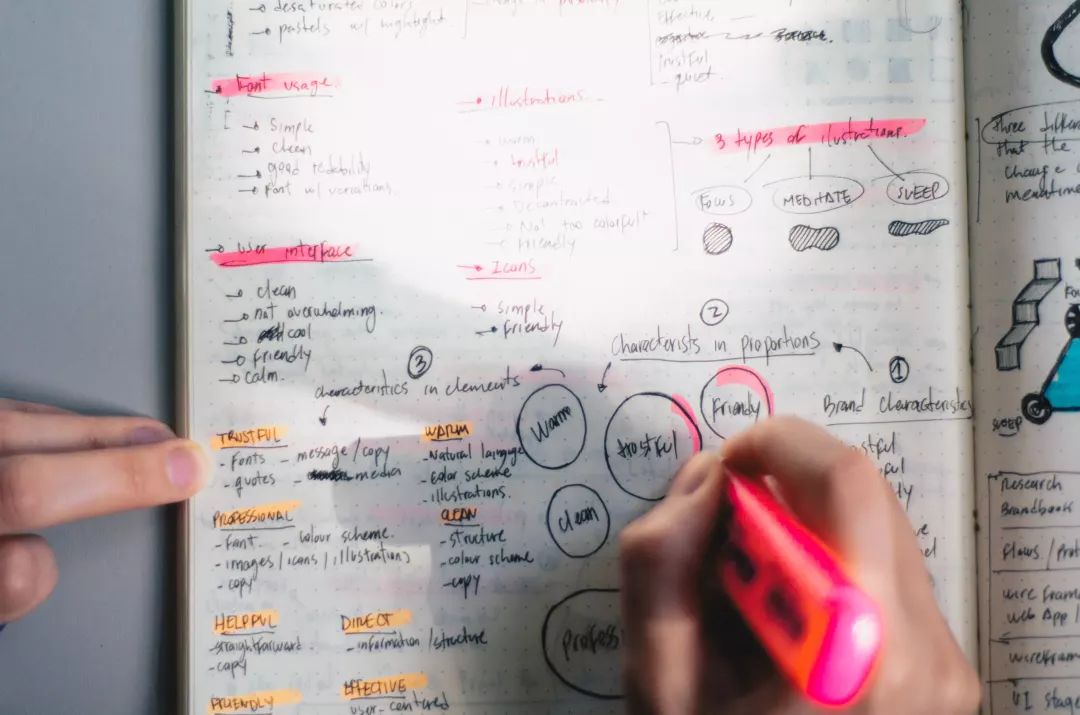 desaturated colors
pastels w/ highlight
Effective
trustful
- quiet.
Font usage
Simple
Clean
good redability
Font w/ variations.
User interface
clean
not overwhelming.
cool
Friendly
calm.
illustrations
warm
trustful
simple
Not too colorful
Friendly
Icons
simple
Friendly
3 types of ilustrations.
Focus
MEDITATE
SLEEP
2
Characterists in proportions
3
characteristics in elements
1
Brand characteristics
Warm
trustful
Friendly
clean
Profess
TRUSTFUL
- Fonts
- message/copy
- quotes
- media
WARM
- Natural language
- Color scheme
- illustrations.
PROFESSIONAL
- Font.
- colour scheme.
- images/icons/illustrations
- copy
CLEAN
- structure
- colour scheme
- copy
HELPFUL
- straightforward
- copy
DIRECT
- information/structure
FRIENDLY
EFFECTIVE
user-centured
three differ
that the
change
meantime
SLEEP
Research
Brandbook
Flows/Prot
Wire Fram
web App/
wirefram
UI stage